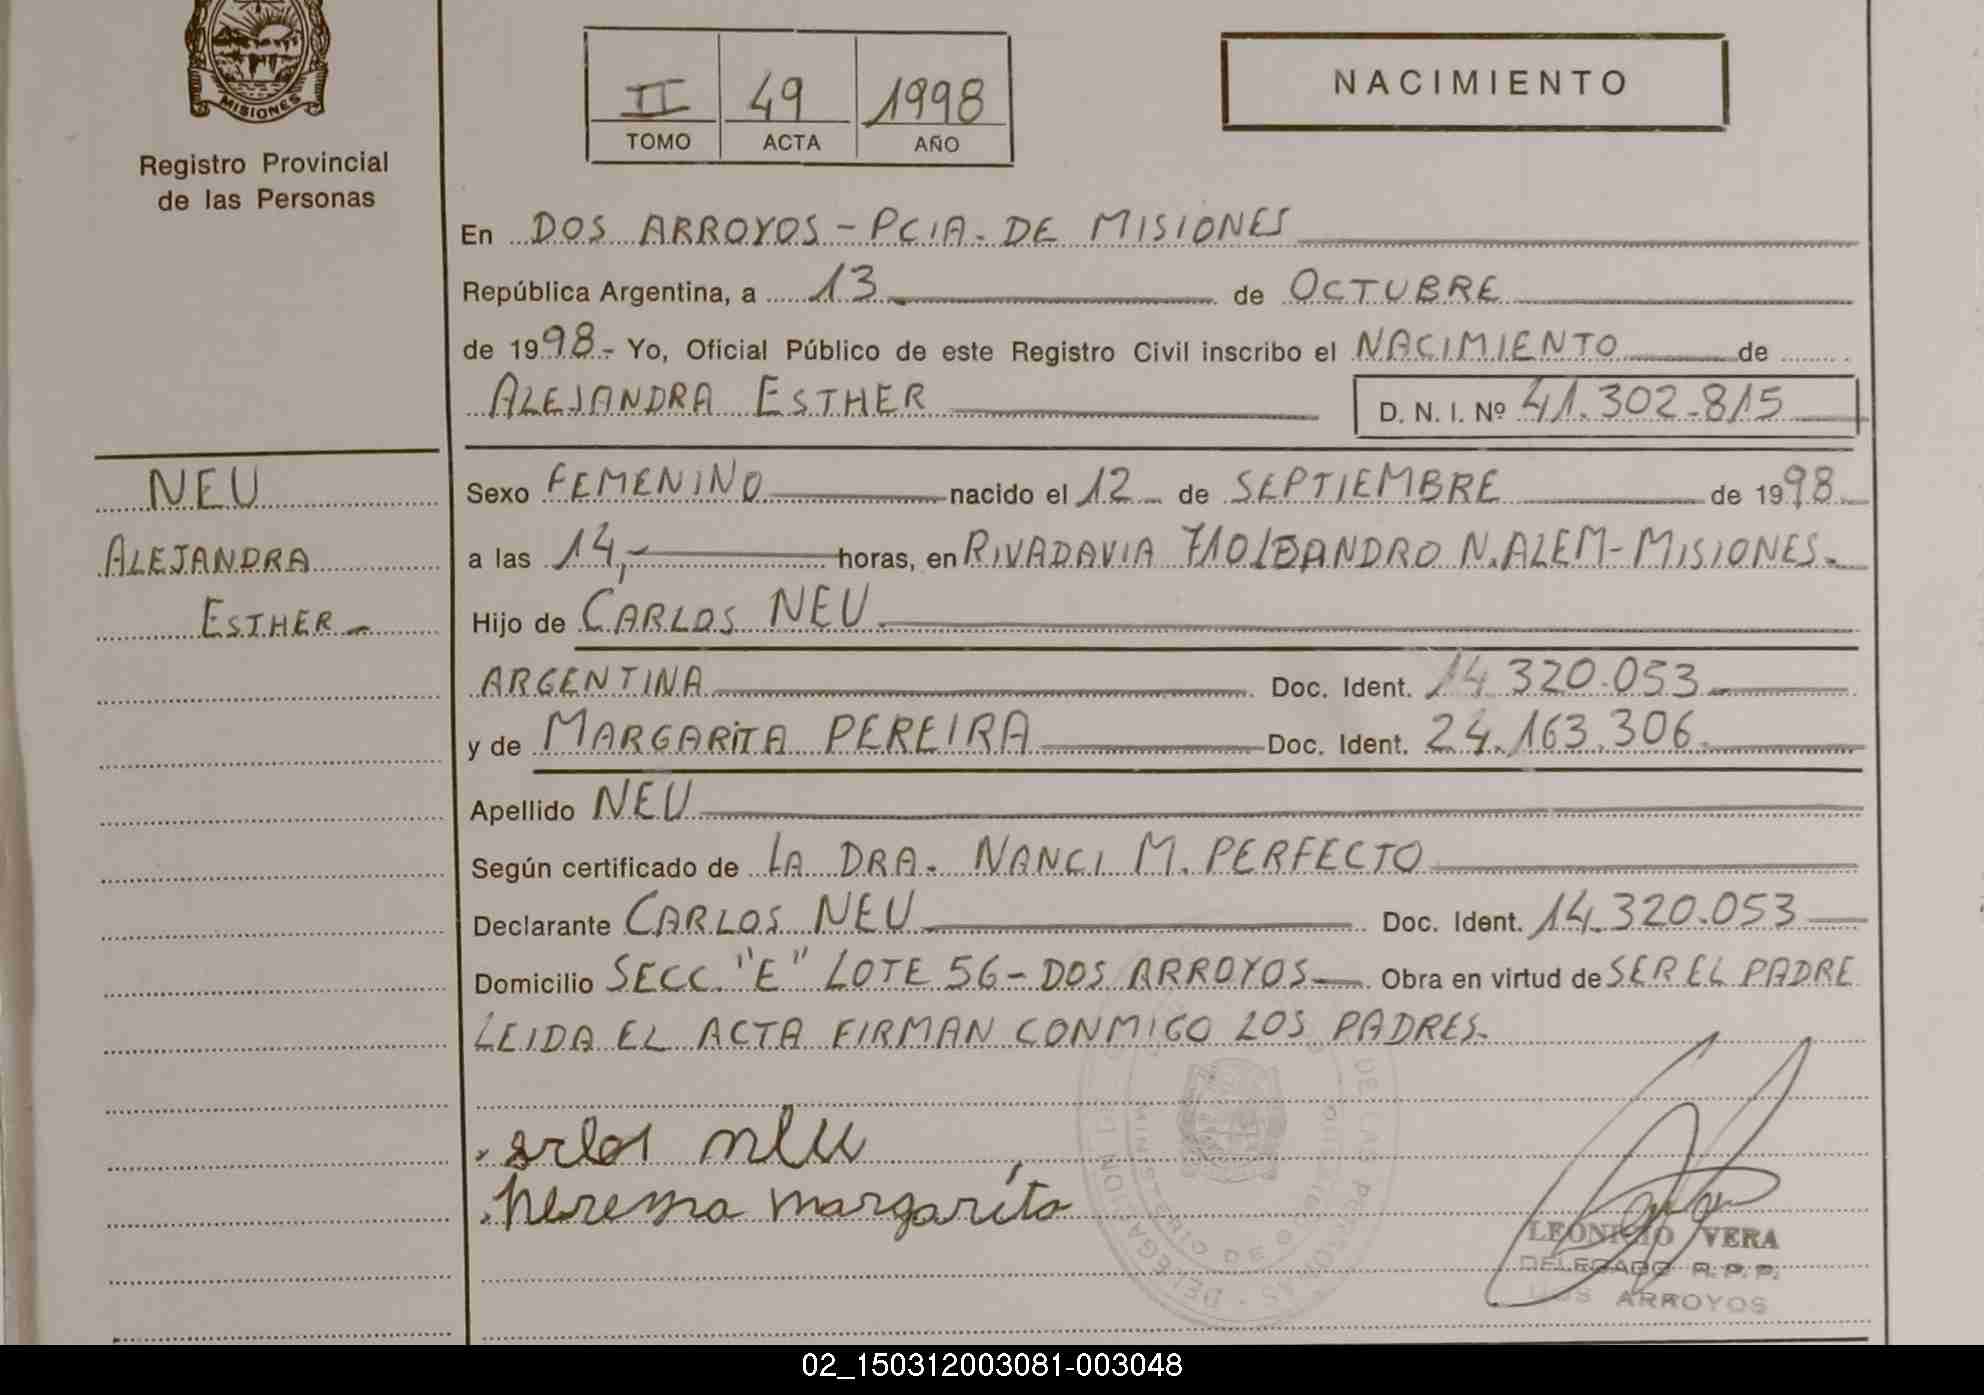 MISIONES
Registro Provincial
de las Personas
II 49 1998
TOMO ACTA AÑO
NACIMIENTO
En DOS ARROYOS - PCIA. DE MISIONES
República Argentina, a 13 de OCTUBRE
de 1998.- Yo, Oficial Público de este Registro Civil inscribo el NACIMIENTO de
ALEJANDRA ESTHER
D. N. I. Nº 41.302.815
NEU
ALEJANDRA
ESTHER -
Sexo FEMENINO nacido el 12 de SEPTIEMBRE de 1998
a las 14,- horas, en RIVADAVIA 710 LEANDRO N. ALEM - MISIONES.-
Hijo de CARLOS NEU
ARGENTINA Doc. Ident. 14.320.053
y de MARGARITA PEREIRA Doc. Ident. 24.163.306
Apellido NEU
Según certificado de LA DRA. NANCI M. PERFECTO
Declarante CARLOS NEU Doc. Ident. 14.320.053
Domicilio SECC. "E" LOTE 56 - DOS ARROYOS Obra en virtud de SER EL PADRE
LEIDA EL ACTA FIRMAN CONMIGO LOS PADRES.
neu
margarita
VERA
DELEGADO R.P.P.
DOS ARROYOS
02_150312003081-003048